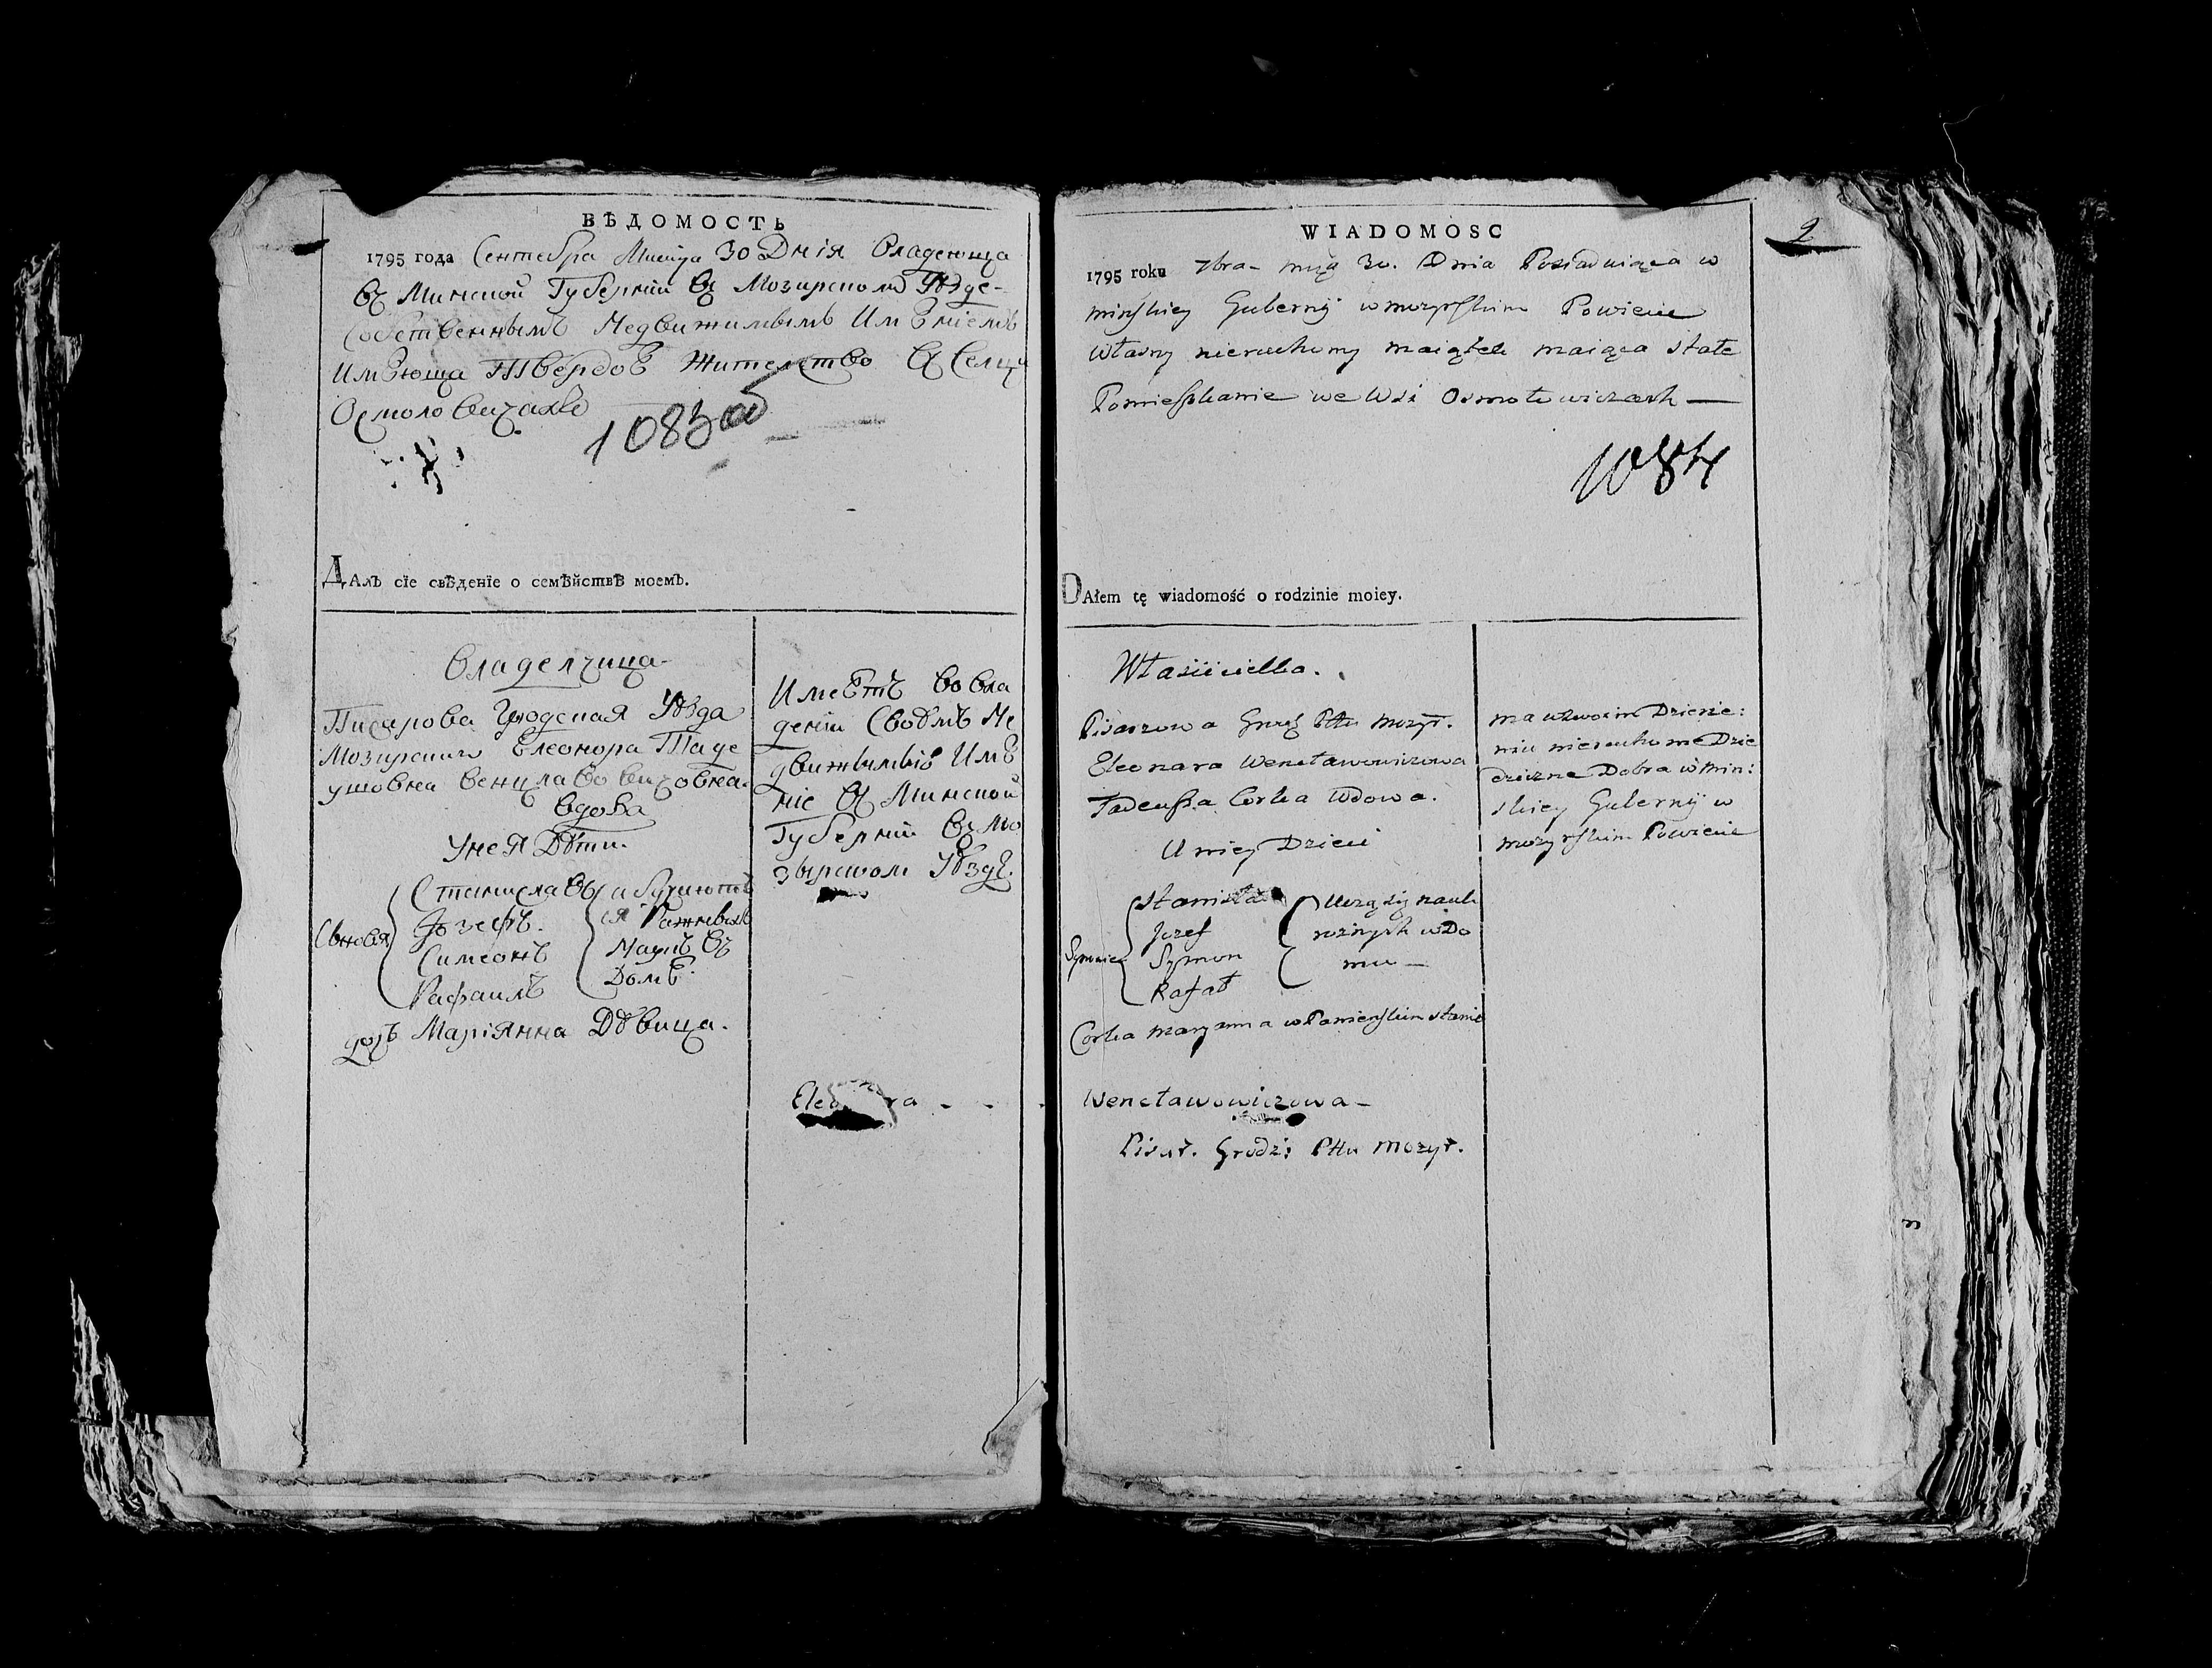 ВѢДОМОСТЬ
1795 года Сентебра Мѣсяца 30 Днія Владеюща
въ Минской Губерніи въ Мозирском Уѣзде
Собственнымъ Недвижимымъ Имѣніемъ
Имѣюща Твердоѣ Жителство въ Селцу
Осмоловичахъ
1083 об
ДАлЪ сіе свѣденіе о семѣйствѣ моемъ.
Владелчица
Писарова Гродская Уѣзда
Мозирскаго Елеонора Таде
ушовна Венцлавовичовна
вдова
У нея Дѣти.
Сыновя
Станиславъ
Іозефъ.
Симеонъ
Рафаилъ
абучиют
ся Разныхъ
Наукъ въ
Домѣ.
дочъ Маріянна Дѣвица.
Имеѣтъ во вла
деніи Своѣмъ Не
движимыѣ Имѣ
ніе въ Минской
Губерніи въ Мо
зырском Уѣздѣ.
Eleonora - - -
WIADOMOSC
2
1795 roku 7bra- mcą 30. Dnia Posiadaiąca w
minskiey Guberny w mozyrskim Powiecie
Własny nieruchomy maiątek maiąca stałe
Pomieszkanie we Wsi Osmołowiczach —
1084
DAłem tę wiadomość o rodzinie moiey.
Właścicielka.
Pisarzowa Grodz Pttu Mozyr.
Eleonara Wencławowiczowa
Tadeusza Corka Wdowa.
U niey Dzieci
Synowie
Stanisław
Jozef
Szymon
Rafał
Uczą się nauk
rożnych w Do
mu —
Corka Maryanna w Panienskim stanie
ma w swoim Dzierże:
niu nieruchome Dzie
dziczne Dobra w Min:
skiey Guberny w
mozyrskim Powiecie
Wencławowiczowa —
Pisar. Grodz: Pttu Mozyr.